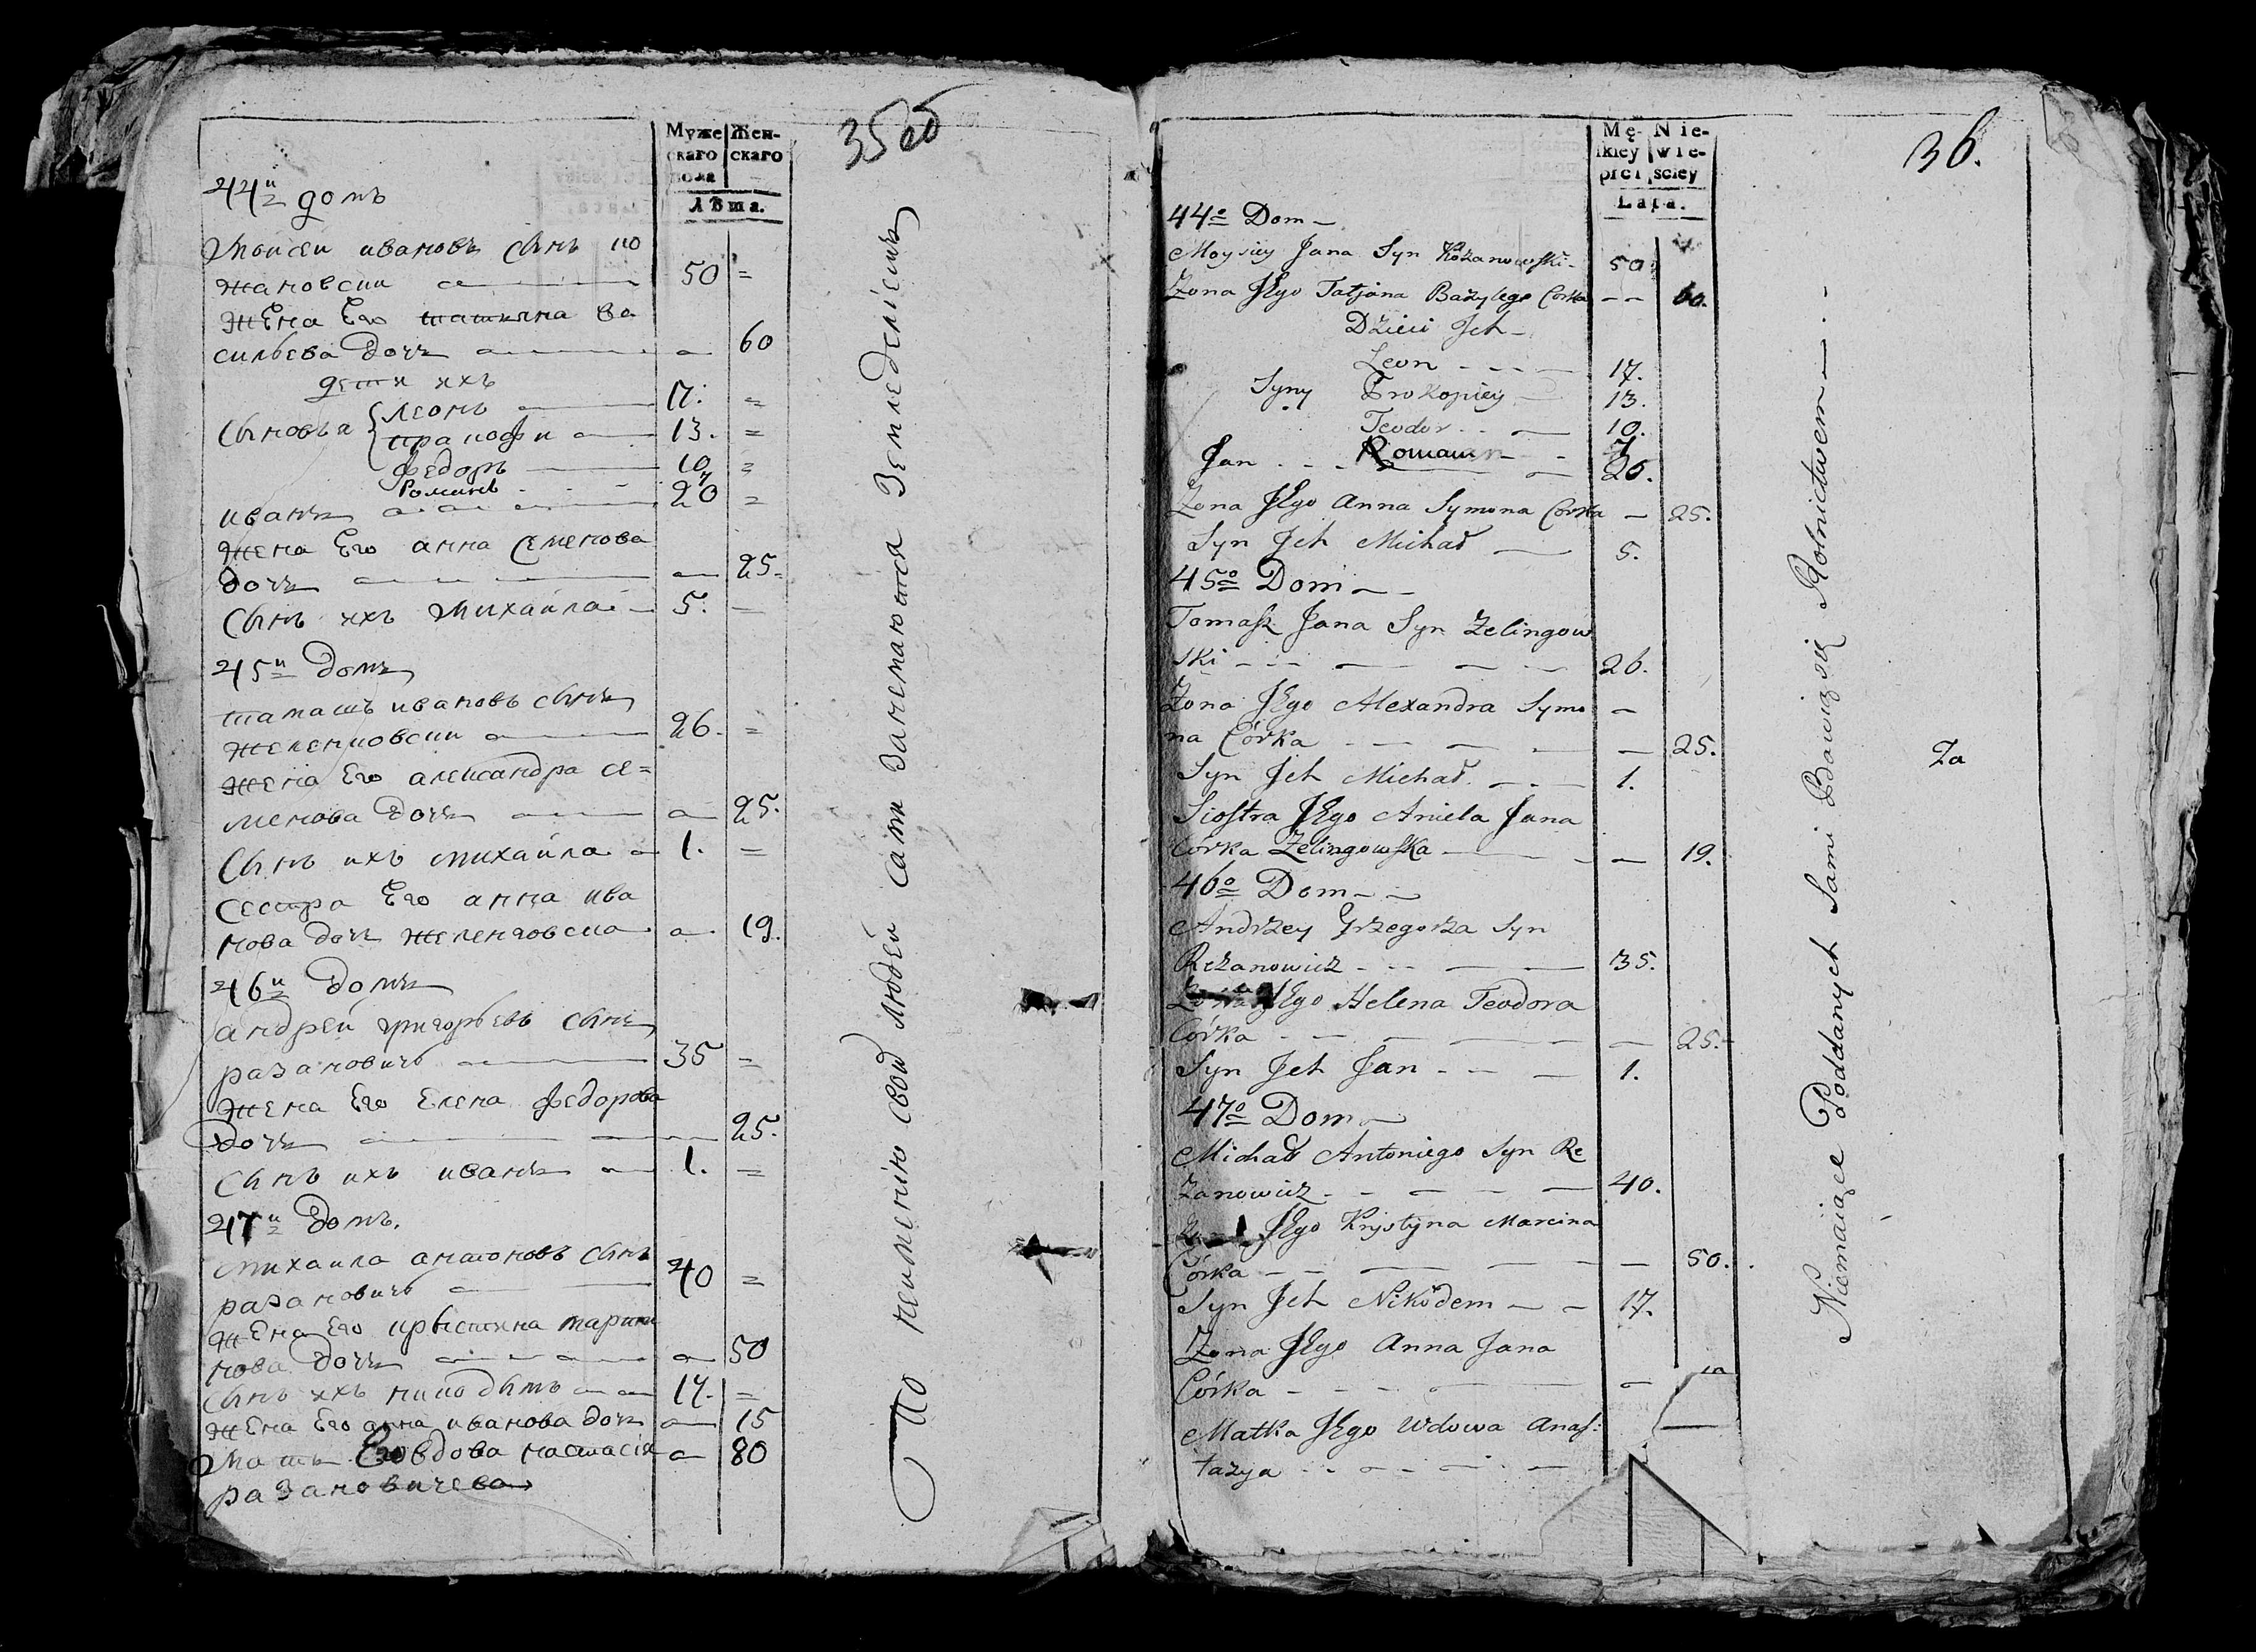 35 об
Муже
скаго
пола
Жен-
скаго
Лѣта.
44й домъ
Моисеи ивановъ сынъ ко
жановски 50 =
жена Его татьяна ва
сильева дочь 60
дети ихъ
Сыновья леонъ 17. =
прокофи 13. =
федоръ 10 =
Романъ 7
иванъ 20 =
жена Его анна Семенова
дочь 25.
Сынъ ихъ Михайла 5. —
45й домъ
тамашъ ивановъ сынъ
желенковски 26. =
жена Его александра се=
менова дочь 25.
Сынъ ихъ михайла 1. =
Сестра Его анна ива
нова дочь желенговска 19.
46й домъ
андрей григорьевъ сынъ
разановичъ 35 =
жена Его Елена федорова
дочь 25.
Сынъ ихъ иванъ 1. =
47й домъ.
михаила антоновъ сынъ
разановичъ 40 =
жена Его крыстина марти
нова дочь 50
Сынъ ихъ никодымъ 17. =
жена Его анна иванова дочь 15
Мать Его вдова настасія 80
разановичева
По неимению свой людей сами занемаются Земледелiемъ
36.
Mę-
ſkiey
płci
Nie-
wie-
ściey
Lata.
44o Dom
Moysiey Jana Syn Kożanowſki 50
Zona JEgo Tatjana Bazylego Corka 60.
Dzieci Jch
Leon 17.
Syny Prokopiey 13.
Teodor 10.
Roman 7
Jan 20.
Zona JEgo Anna Symona Corka 25.
Syn Jch Michał 5.
45o Dom
Tomaſz Jana Syn Zelingow
ski 26.
Zona JEgo Alexandra Symo
na Córka 25.
Syn Jch Michał 1.
Sioſtra JEgo Aniela Jana
Córka Zelingowſka 19.
46o Dom
Andrzey Grzegorza Syn
Rezanowicz 35.
Zona JEgo Helena Teodora
Córka 25.
Syn Jch Jan 1.
47o Dom
Michał Antoniego Syn Re
zanowicz 40.
JEgo Krystyna Marcina
Córka 50.
Syn Jch Nikodem 17.
Zona JEgo Anna Jana
Córka
Matka JEgo Wdowa Anaſ:
tazya
Niemaiące Poddanych Sami Bawią się Rolnictwem
Za